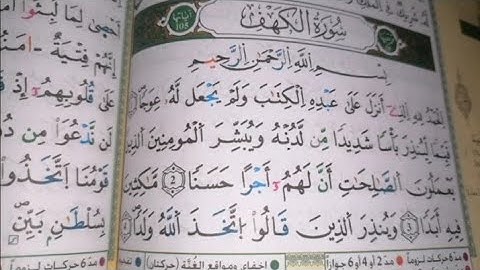 سُورَةُ الكَهْفِ
بِسْمِ اللَّهِ الرَّحْمَٰنِ الرَّحِيمِ
الْحَمْدُ لِلَّهِ الَّذِي أَنزَلَ عَلَىٰ عَبْدِهِ الْكِتَٰبَ وَلَمْ يَجْعَل لَّهُ عِوَجًا
قَيِّمًا لِّيُنذِرَ بَأْسًا شَدِيدًا مِّن لَّدُنْهُ وَيُبَشِّرَ الْمُومِنِينَ الَّذِينَ
يَعْمَلُونَ الصَّٰلِحَٰتِ أَنَّ لَهُمُۥ أَجْرًا حَسَنًا 2 مَّٰكِثِينَ
فِيهِ أَبَدًا 3 وَيُنذِرَ الَّذِينَ قَالُوا اتَّخَذَ اللَّهُ وَلَدًا 4
لِمَا لَبِثُوا
إِنَّهُمْ فِتْيَةٌ
عَلَىٰ قُلُوبِهِمُۥ إِذْ
لَن نَّدْعُوَا مِن
قَوْمُنَا اتَّخَذُوا
بِسُلْطَٰنٍ بَيِّنٍ
مدّ 6 حركات لزوماً مدّ 2 أو 4 أو 6 جوازاً
إخفاء، ومواقع الغُنَّة (حركتان)